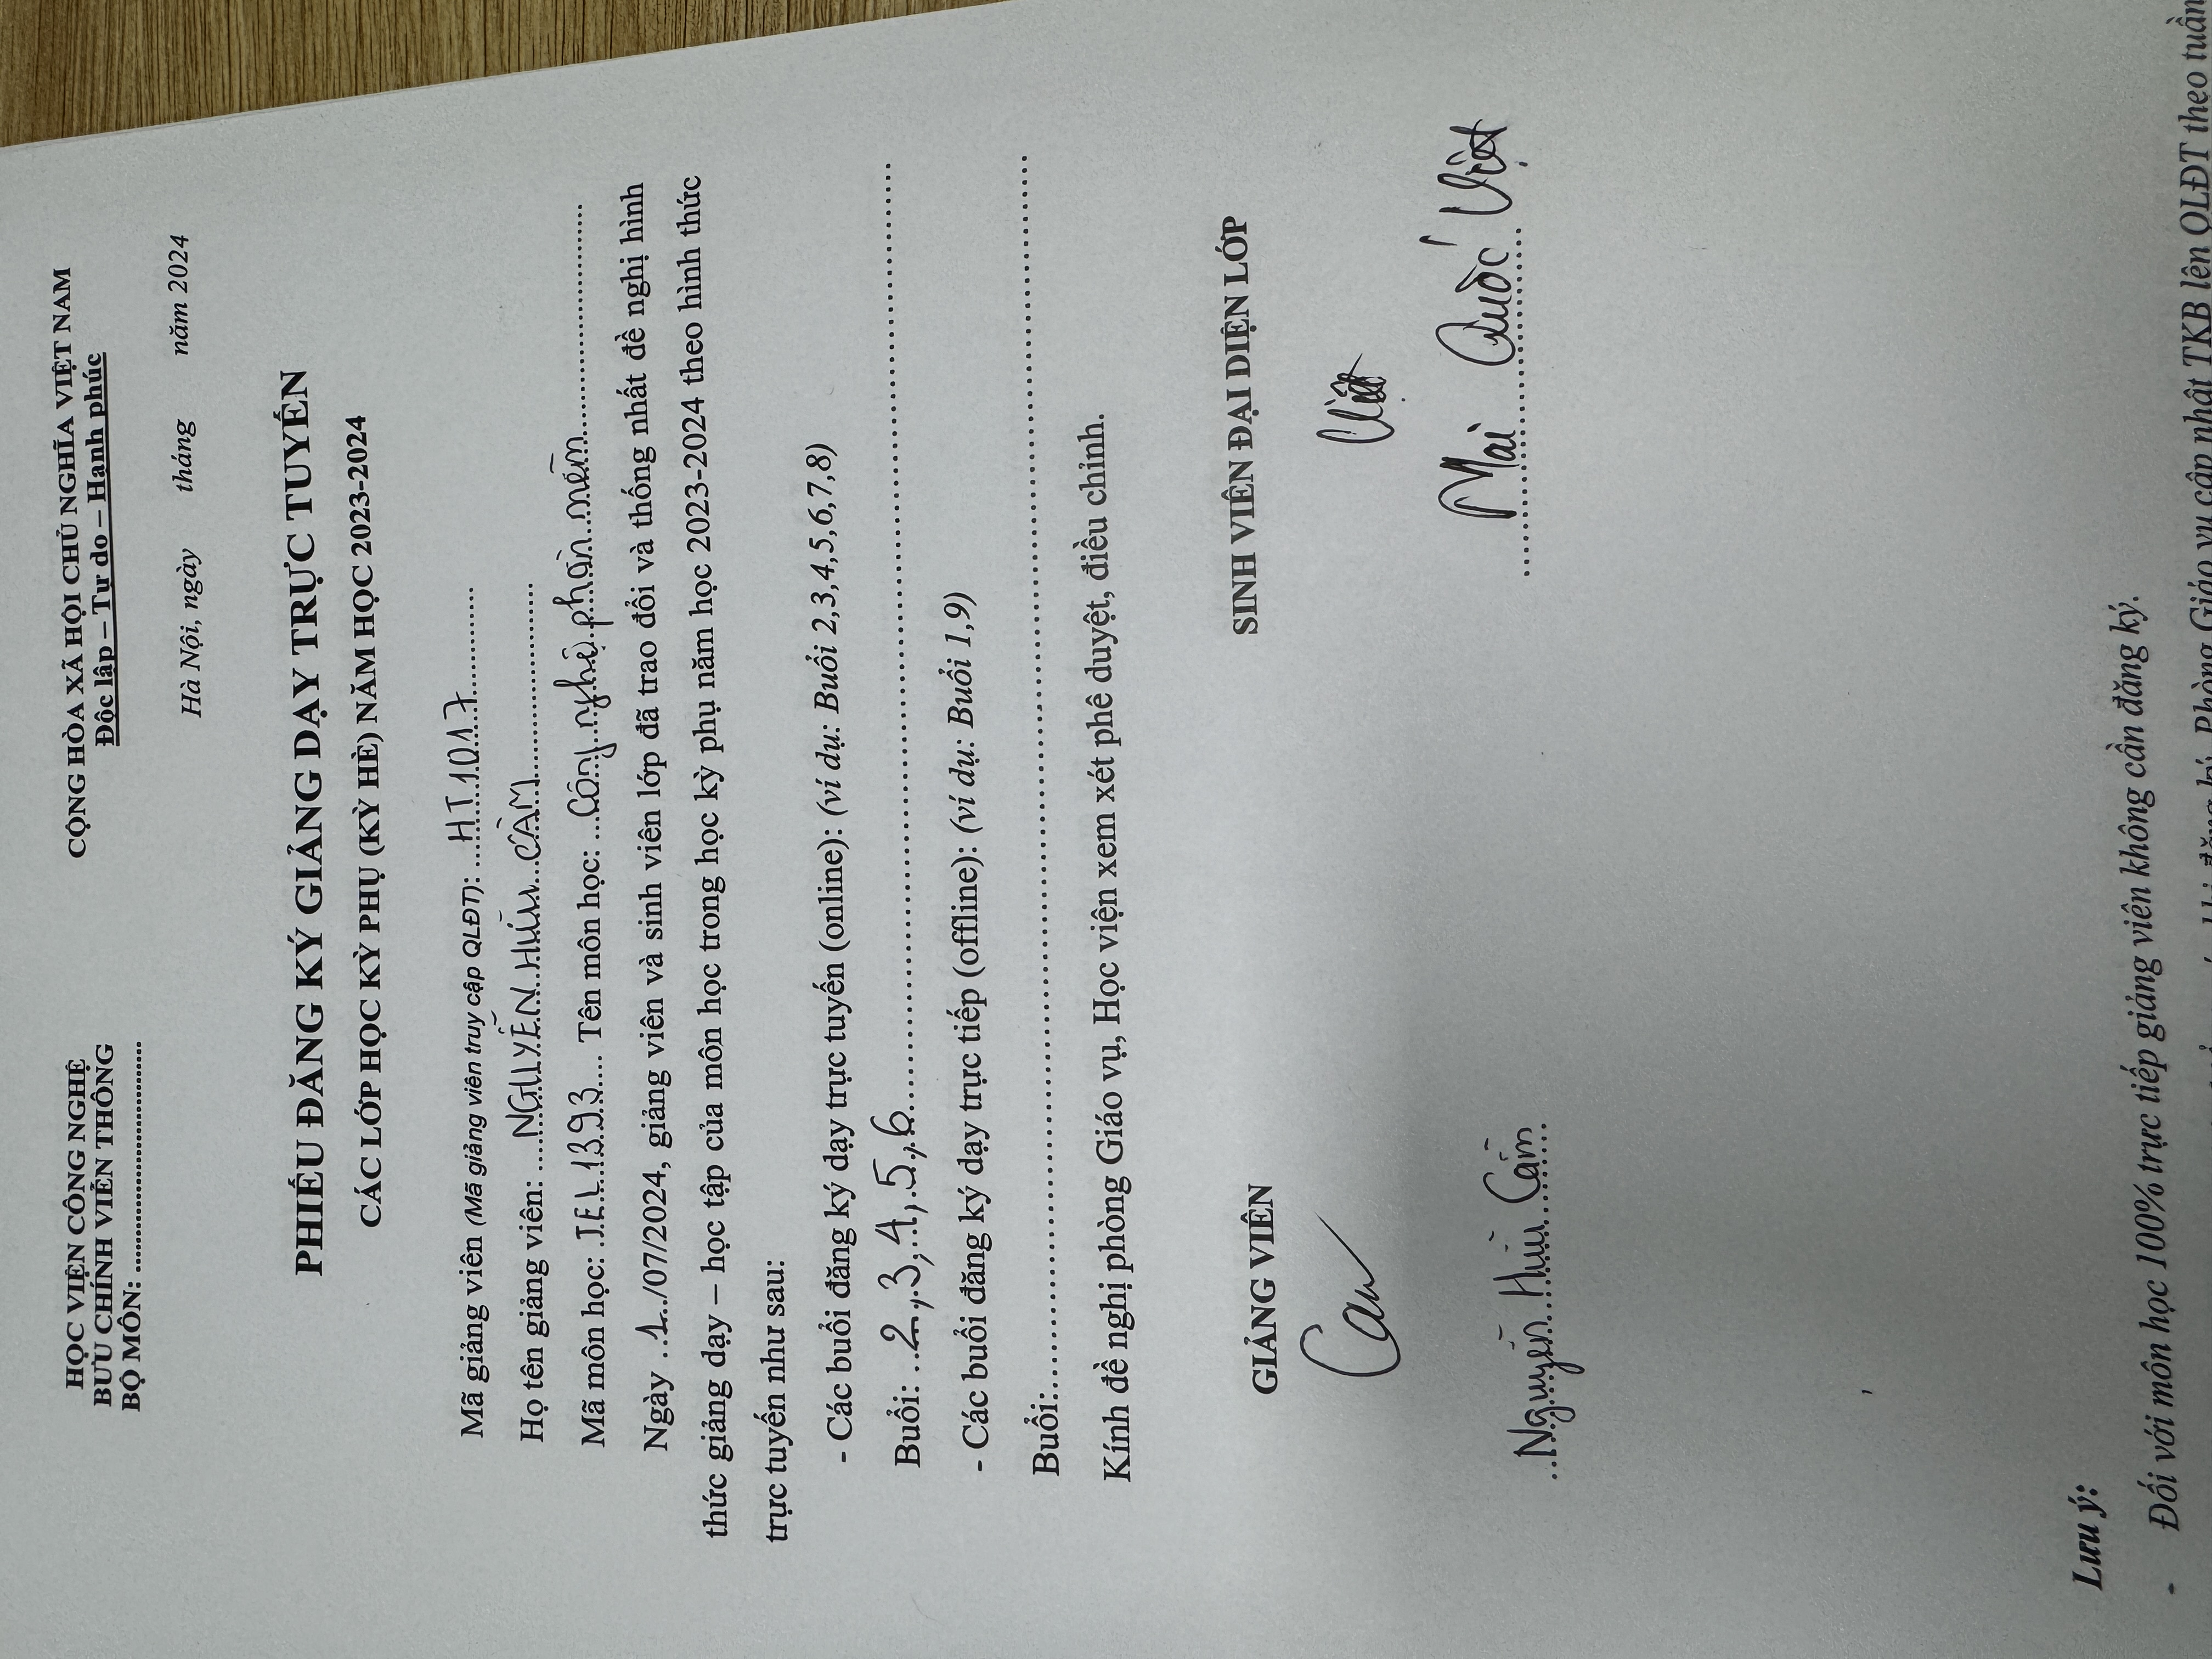 HỌC VIỆN CÔNG NGHỆ
BƯU CHÍNH VIỄN THÔNG
BỘ MÔN: ................................
CỘNG HÒA XÃ HỘI CHỦ NGHĨA VIỆT NAM
Độc lập – Tự do – Hạnh phúc
Hà Nội, ngày tháng năm 2024
PHIẾU ĐĂNG KÝ GIẢNG DẠY TRỰC TUYẾN
CÁC LỚP HỌC KỲ PHỤ (KỲ HÈ) NĂM HỌC 2023-2024
Mã giảng viên (Mã giảng viên truy cập QLĐT): HT1017
Họ tên giảng viên: NGUYỄN HỮU CẦM
Mã môn học: TEL1393 Tên môn học: Công nghệ phần mềm
Ngày 1/07/2024, giảng viên và sinh viên lớp đã trao đổi và thống nhất đề nghị hình
thức giảng dạy – học tập của môn học trong học kỳ phụ năm học 2023-2024 theo hình thức
trực tuyến như sau:
- Các buổi đăng ký dạy trực tuyến (online): (ví dụ: Buổi 2,3,4,5,6,7,8)
Buổi: 2,3,4,5,6
- Các buổi đăng ký dạy trực tiếp (offline): (ví dụ: Buổi 1,9)
Buổi:................................
Kính đề nghị phòng Giáo vụ, Học viện xem xét phê duyệt, điều chỉnh.
GIẢNG VIÊN
SINH VIÊN ĐẠI DIỆN LỚP
Việt
Nguyễn Hữu Cầm
Mai Quốc Việt
Lưu ý:
- Đối với môn học 100% trực tiếp giảng viên không cần đăng ký.
khi đăng ký, Phòng Giáo vụ cập nhật TKB lên QLĐT theo tuần